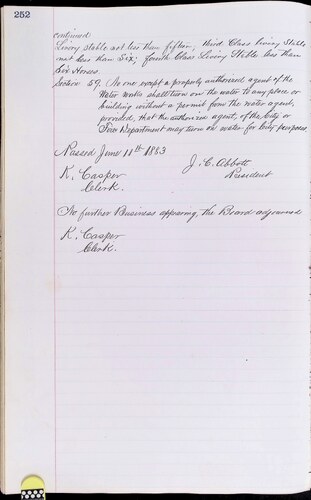 252
continued
Livery Stable not less than fifteen, third Class Livery Stable
not less than Six; fourth Class Livery Stable less than
Six Horses.
Section 59. No one except a properly authorized agent of the
Water Works shall turn on the water to any place or
building without a permit from the water agent,
provided, that the authorized agent, of the City or
Fire Department may turn on water for City purposes
Passed June 11th 1883
K. Casper
Clerk.
J. C. Abbott
President
No further Business appearing, the Board adjourned
K. Casper
Clerk.